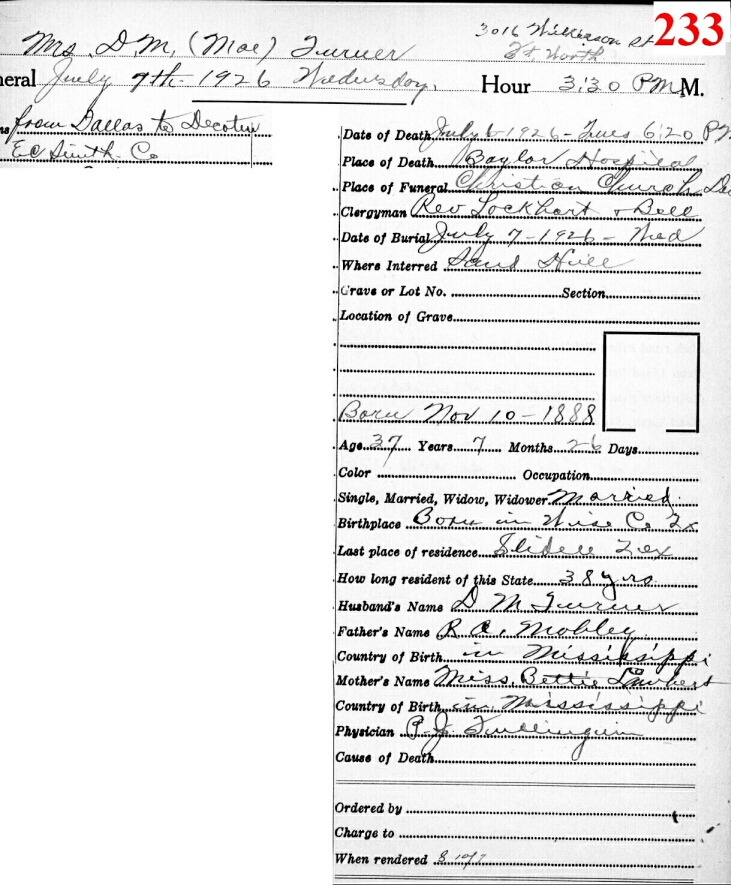 233
3016 Wilkerson St
Ft. Worth
Mrs. D.M. (Mae) Turner
neral July 7th - 1926 Wednesday. Hour 3:30 PM M.
from Dallas to Decatur
E C Smith Co
Date of Death July 6 1926 - Tues 6:20 PM
Place of Death Baylor Hospital
Place of Funeral Christian Church, Dec
Clergyman Rev Lockhart + Bell
Date of Burial July 7 - 1926 - Wed
Where Interred Sand Hill
Grave or Lot No. Section
Location of Grave
Born Nov 10 - 1888
Age 37 Years 7 Months 26 Days
Color Occupation
Single, Married, Widow, Widower Married.
Birthplace Born in Wise Co Tx
Last place of residence Slidell Tex
How long resident of this State 38 yrs
Husband's Name D M Turner
Father's Name R. C. Mobley
Country of Birth in Mississippi
Mother's Name Miss. Bettie
Country of Birth in Mississippi
Physician P. J. Fullingim
Cause of Death
Ordered by
Charge to
When rendered